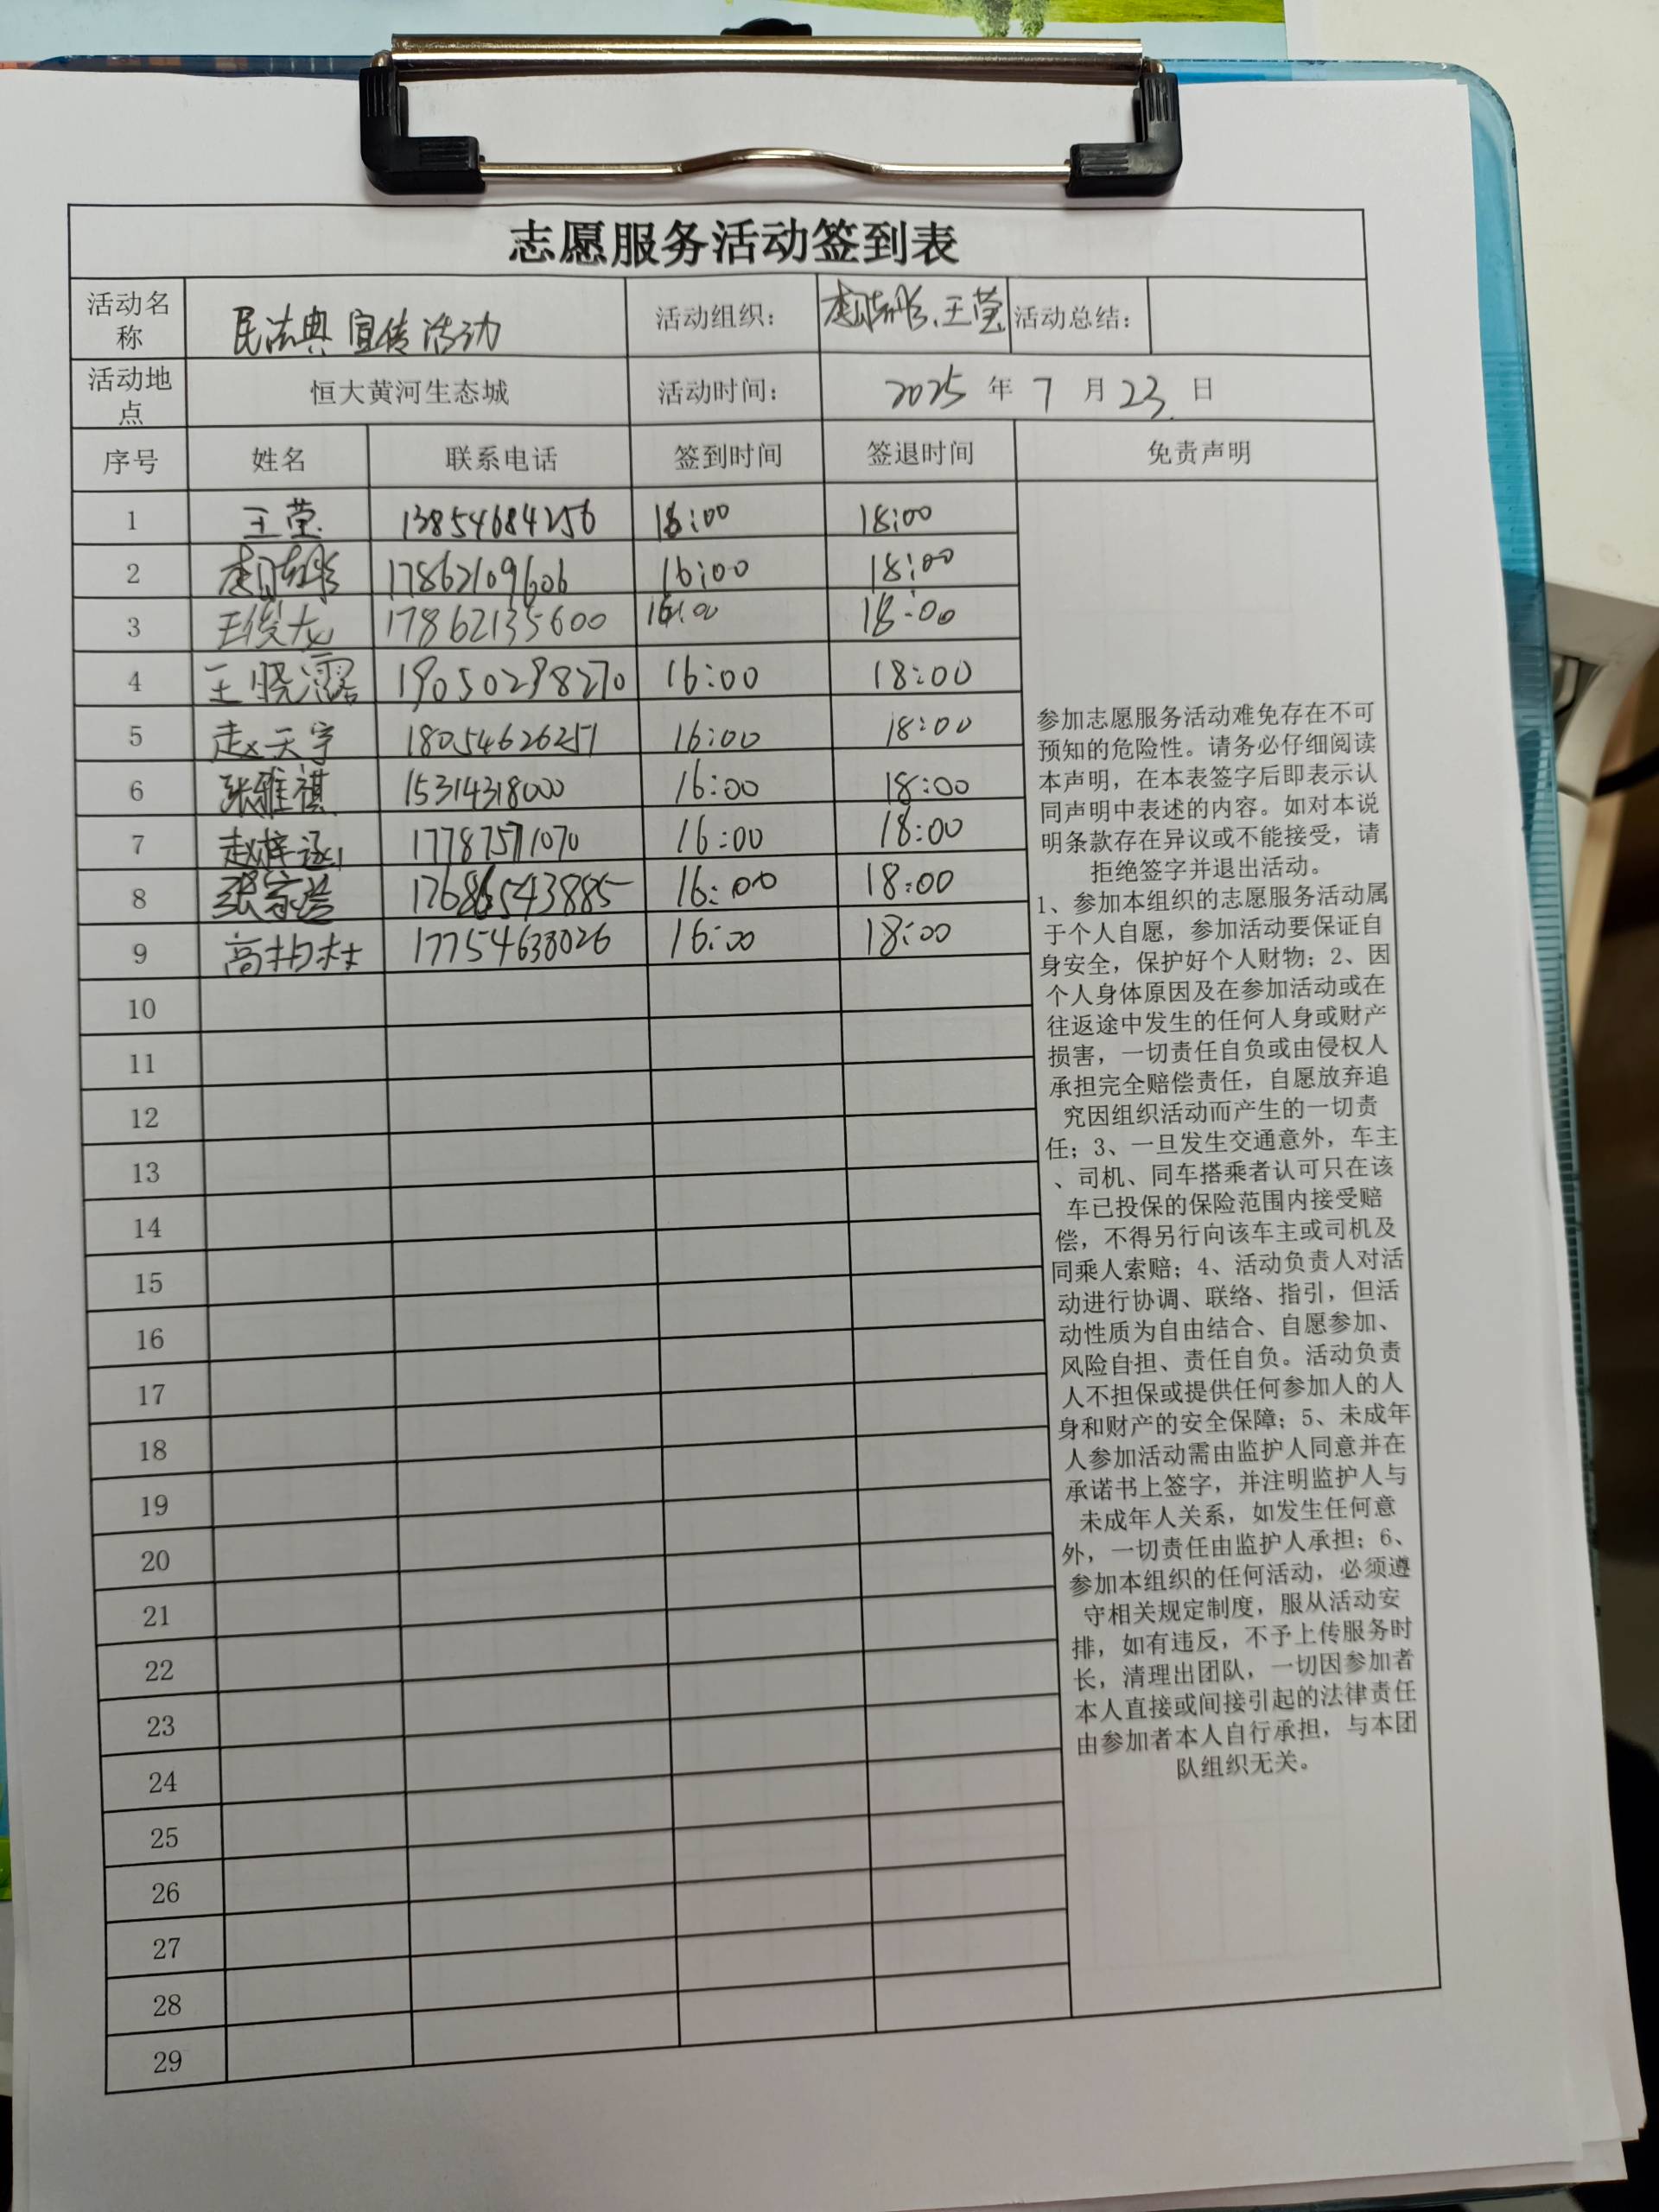 志愿服务活动签到表
活动名称 民法典宣传活动 活动组织： 王莹 活动总结：
活动地点 恒大黄河生态城 活动时间： 2025 年 7 月 23 日
序号 姓名 联系电话 签到时间 签退时间 免责声明
1 王莹 13854684256 16:00 18:00
2 17862109606 16:00 18:00
3 王俊龙 17862135600 16:00 18:00
4 王晓露 19050298270 16:00 18:00
5 赵天宇 18054626251 16:00 18:00
6 张雅祺 15314318000 16:00 18:00
7 赵梓涵 17787571070 16:00 18:00
8 16:00 18:00
9 17754638026 16:00 18:00
10
11
12
13
14
15
16
17
18
19
20
21
22
23
24
25
26
27
28
29
参加志愿服务活动难免存在不可
预知的危险性。请务必仔细阅读
本声明，在本表签字后即表示认
同声明中表述的内容。如对本说
明条款存在异议或不能接受，请
拒绝签字并退出活动。
1、参加本组织的志愿服务活动属
于个人自愿，参加活动要保证自
身安全，保护好个人财物；2、因
个人身体原因及在参加活动或在
往返途中发生的任何人身或财产
损害，一切责任自负或由侵权人
承担完全赔偿责任，自愿放弃追
究因组织活动而产生的一切责
任；3、一旦发生交通意外，车主
、司机、同车搭乘者认可只在该
车已投保的保险范围内接受赔
偿，不得另行向该车主或司机及
同乘人索赔；4、活动负责人对活
动进行协调、联络、指引，但活
动性质为自由结合、自愿参加、
风险自担、责任自负。活动负责
人不担保或提供任何参加人的人
身和财产的安全保障；5、未成年
人参加活动需由监护人同意并在
承诺书上签字，并注明监护人与
未成年人关系，如发生任何意
外，一切责任由监护人承担；6、
参加本组织的任何活动，必须遵
守相关规定制度，服从活动安
排，如有违反，不予上传服务时
长，清理出团队，一切因参加者
本人直接或间接引起的法律责任
由参加者本人自行承担，与本团
队组织无关。